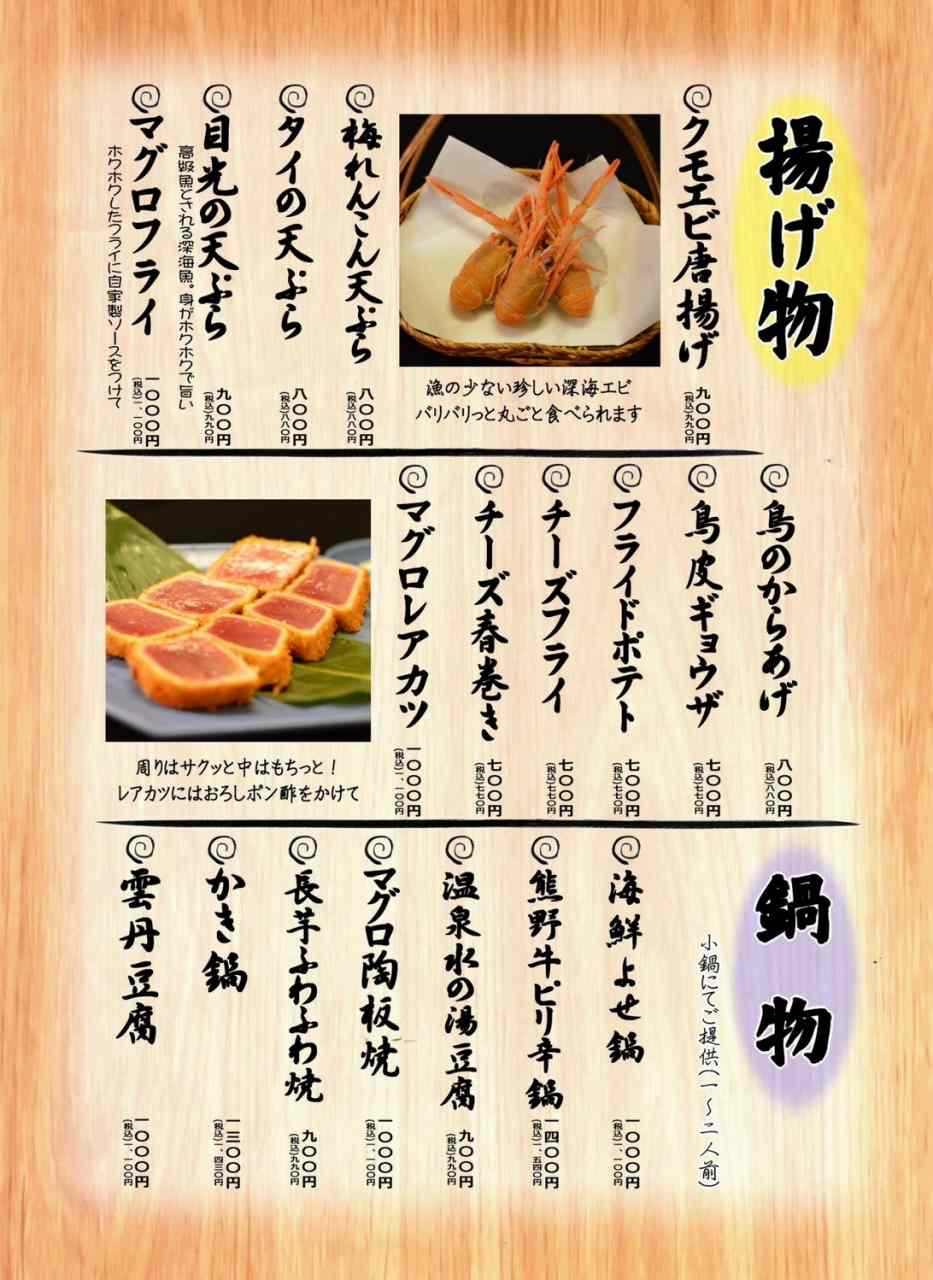 揚げ物
クモエビ唐揚げ
九〇〇円
(税込)九九〇円
漁の少ない珍しい深海エビ
バリバリっと丸ごと食べられます
梅れんこん天ぷら
八〇〇円
(税込)八八〇円
タイの天ぷら
八〇〇円
(税込)八八〇円
目光の天ぷら
高級魚とされる深海魚。身がホクホクで旨い
九〇〇円
(税込)九九〇円
マグロフライ
ホクホクしたフライに自家製ソースをつけて
一〇〇〇円
(税込)一、一〇〇円
鳥のからあげ
八〇〇円
(税込)八八〇円
鳥皮ギョウザ
七〇〇円
(税込)七七〇円
フライドポテト
七〇〇円
(税込)七七〇円
チーズフライ
七〇〇円
(税込)七七〇円
チーズ春巻き
七〇〇円
(税込)七七〇円
マグロレアカツ
一〇〇〇円
(税込)一、一〇〇円
周りはサクッと中はもちっと！
レアカツにはおろしポン酢をかけて
鍋物
小鍋にてご提供(一～二人前)
海鮮よせ鍋
一〇〇〇円
(税込)一、一〇〇円
熊野牛ピリ辛鍋
一四〇〇円
(税込)一、五四〇円
温泉水の湯豆腐
九〇〇円
(税込)九九〇円
マグロ陶板焼
一〇〇〇円
(税込)一、一〇〇円
長芋ふわふわ焼
九〇〇円
(税込)九九〇円
かき鍋
一三〇〇円
(税込)一、四三〇円
雲丹豆腐
一〇〇〇円
(税込)一、一〇〇円